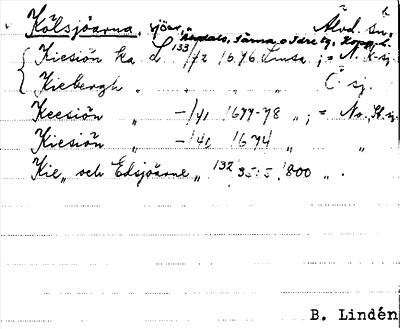 Kölsjöarna, sjöar, Älvd. sn.
Särna o Idre tg, Kopp. l.
Kiesiön ka L 133/72 1676 Linsa ; = N. K-sj.
Kiebergh " " " " Ö sj.
Keesiön " -/41 1677-78 " ; = No. St. sj.
Kiesiön " -/41 1674 " "
Kie„ och Edsjöarne „ 132/35:5 1800 „ .
B. Lindén